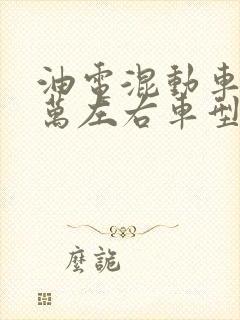 油電混動車
萬左右車型
麼詭